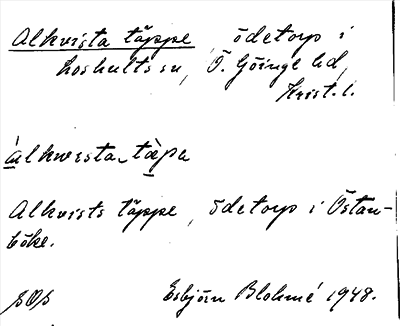 Alkvista täppe, ödetorp i
Loshults sn, Ö. Göinge hd,
Krist. l.
àlkwista_tæ̀pa
Alkvists täppe, ödetorp i Östan-
böke.
SOS Esbjörn Blohmé 1948.